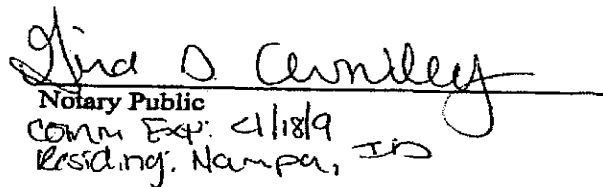 Gina D.
Notary Public
Comm Exp: 4/18/9
Residing: Nampa, ID